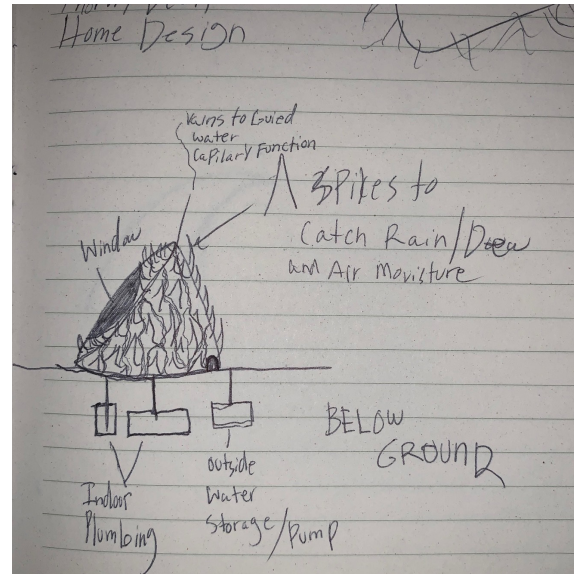 Home Design
Vains to Guied
water
Capilary Function
Spikes to
Catch Rain/Dew
and Air Movisture
Window
BELOW
GROUND
Indoor
Plumbing
outside
Water
Storage/Pump